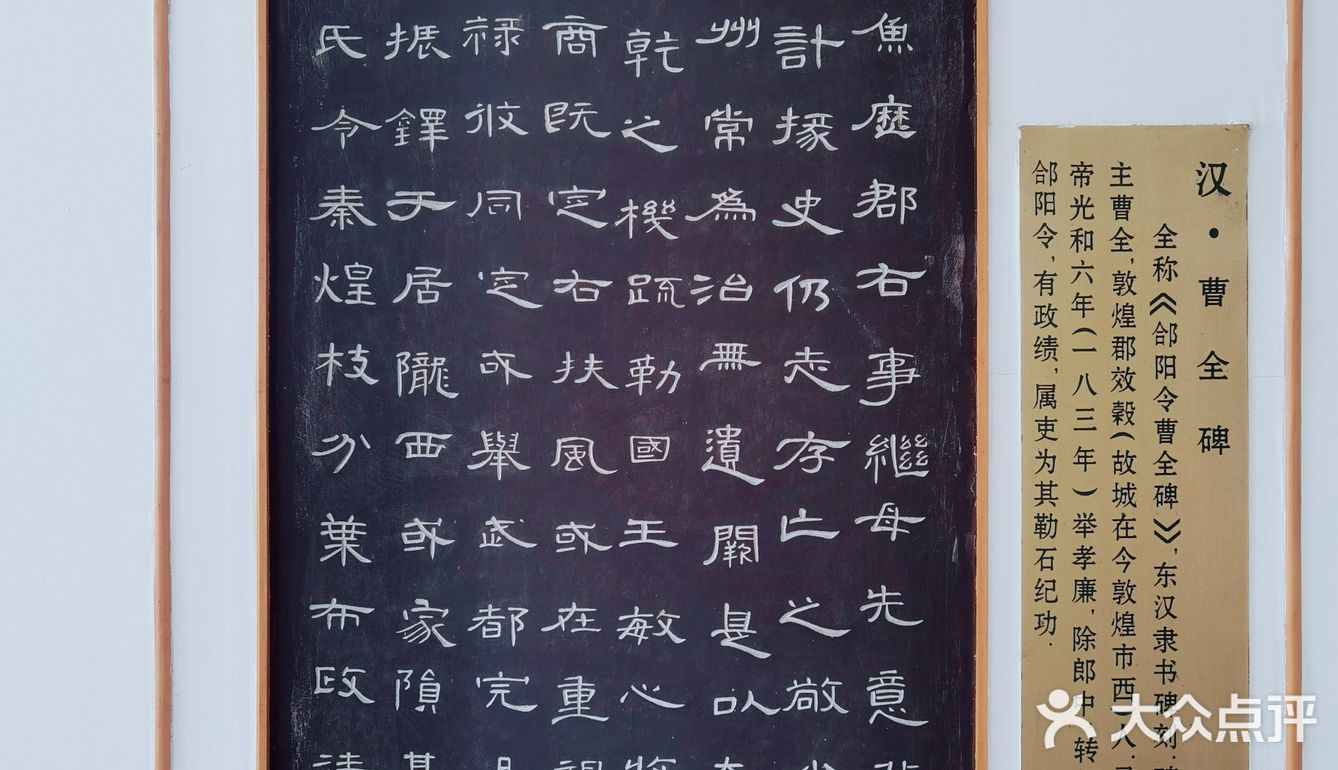 汉·曹全碑
全称《郃阳令曹全碑》,东汉隶书碑刻.
主曹全,敦煌郡效穀(故城在今敦煌市西)人.
帝光和六年(一八三年)举孝廉,除郎中 转
郃阳令,有政绩,属吏为其勒石纪功.
魚歷郡右事繼母先意
計掾史仍志存亡之敬
州常為治無遺闕是以
乾之機疏勒國王敏心
商既定右扶風或在重
禄攸同定或舉武都完
振鐸于居隴西或家隕
氏令秦煌枝分葉布政
大众点评